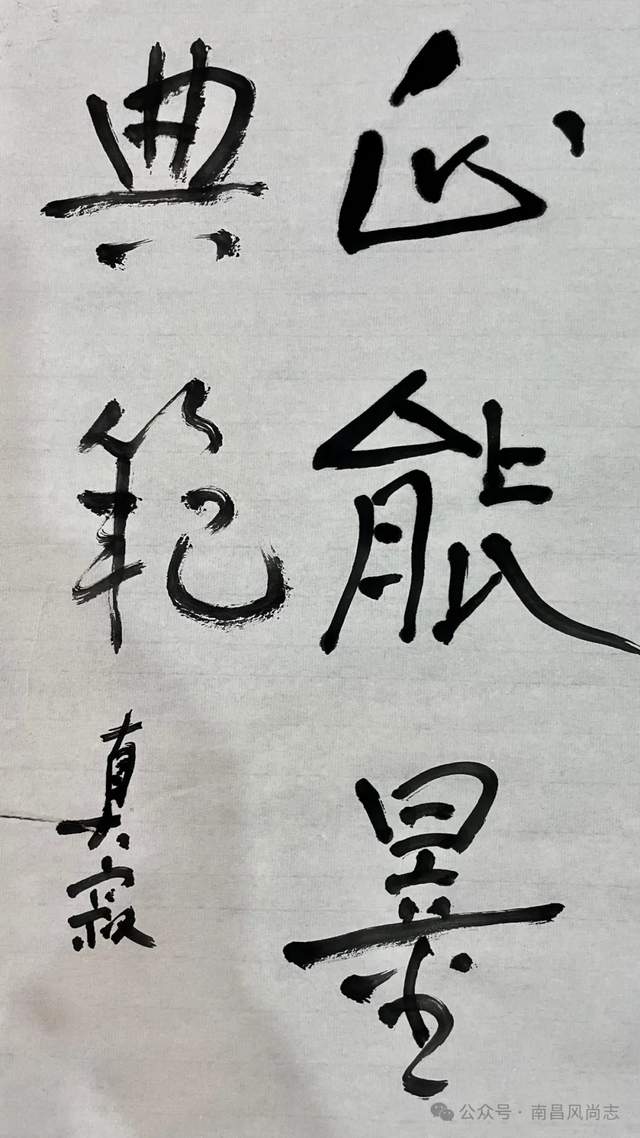 正能量
典範
真寂
公众号·南昌风尚志